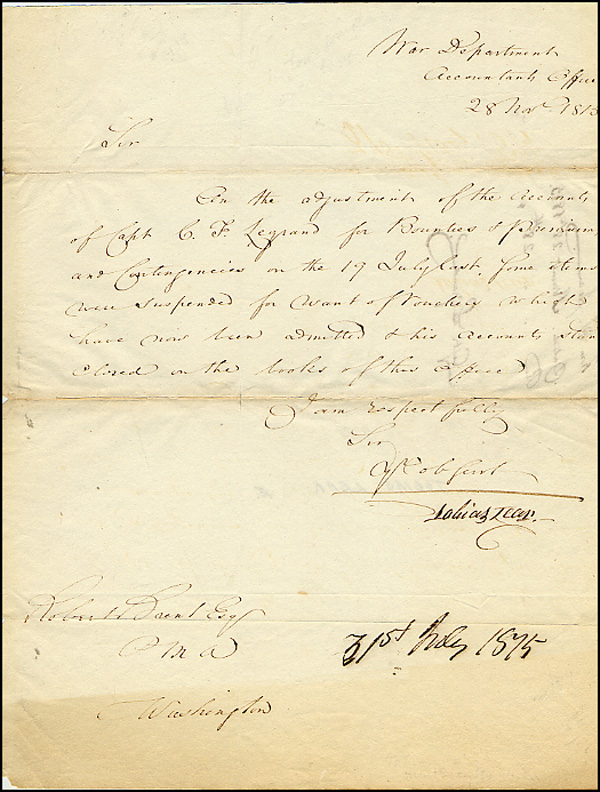 War Department
Accountants Office
28 Nov. 1815
Sir
On the adjustment of the Accounts
of Capt C. F. Legrand for Bounties & Premiums
and Contingencies on the 19 July last, Some items
were suspended for want of Vouchers which
have now been admitted & his Accounts Stand
closed on the books of this Office
I am respectfully
Sir
Yr Ob Servt
Tobias Lear.
Robert Brent Esqr
P M A
Washington
31st July 1875